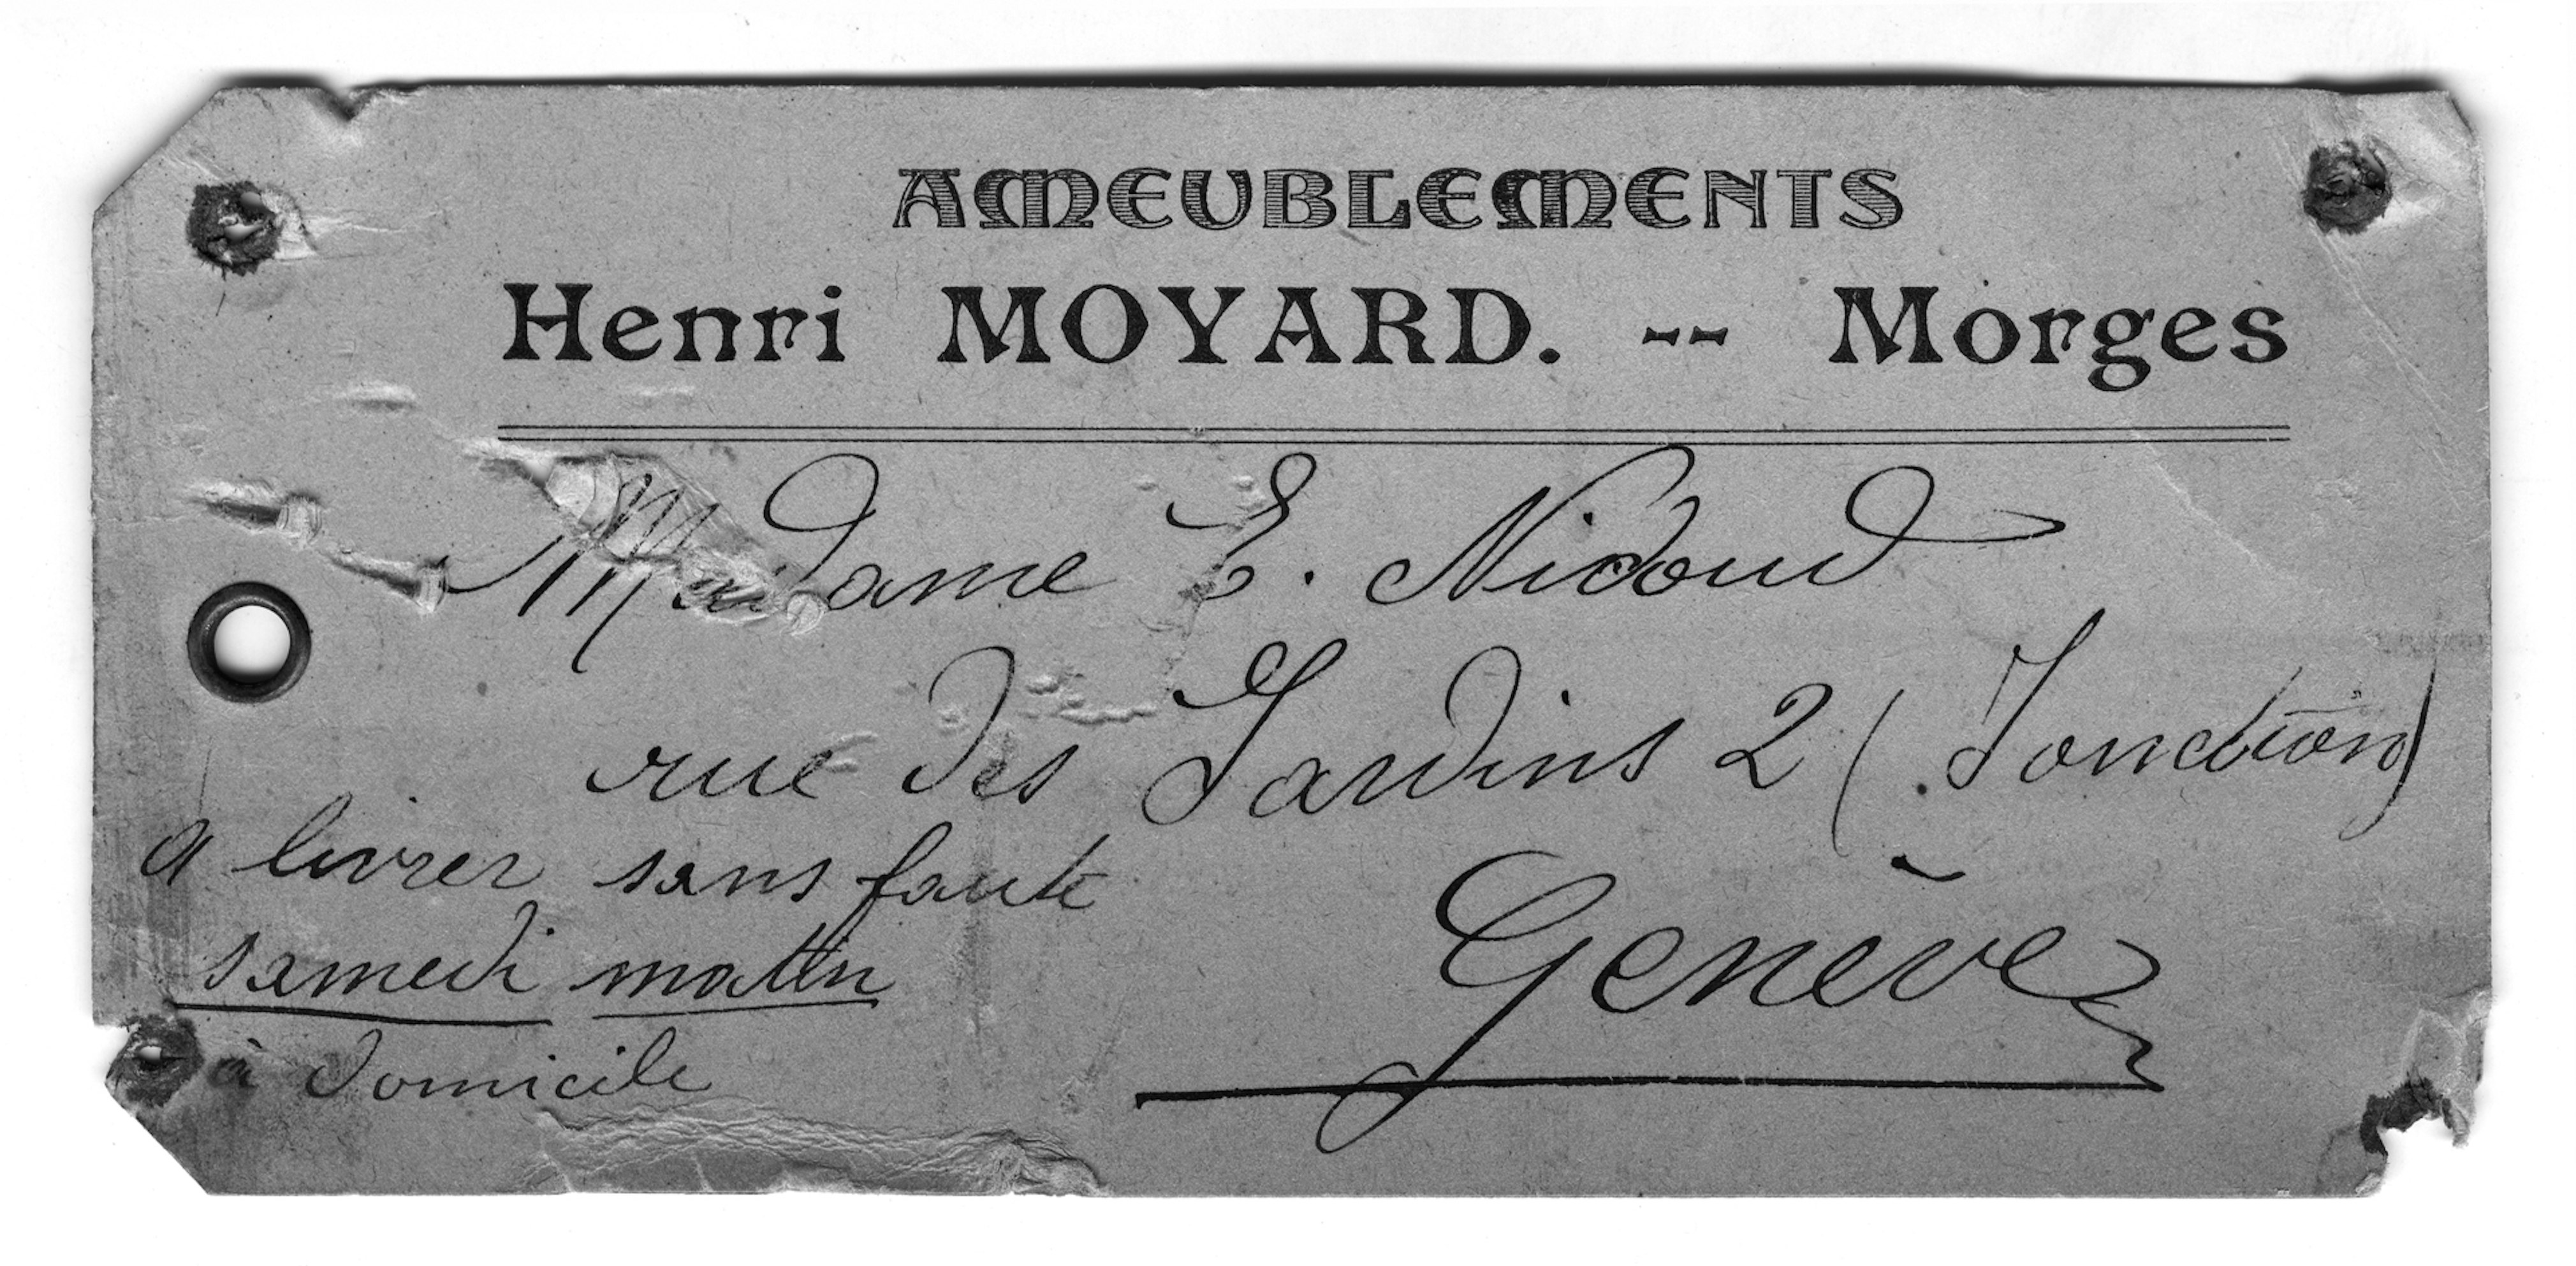 AMEUBLEMENTS
Henri MOYARD. -- Morges
Madame E. Nidoud
rue des Jardins 2 (Jonction)
a livrer sans faute
samedi matin
à domicile
Genève